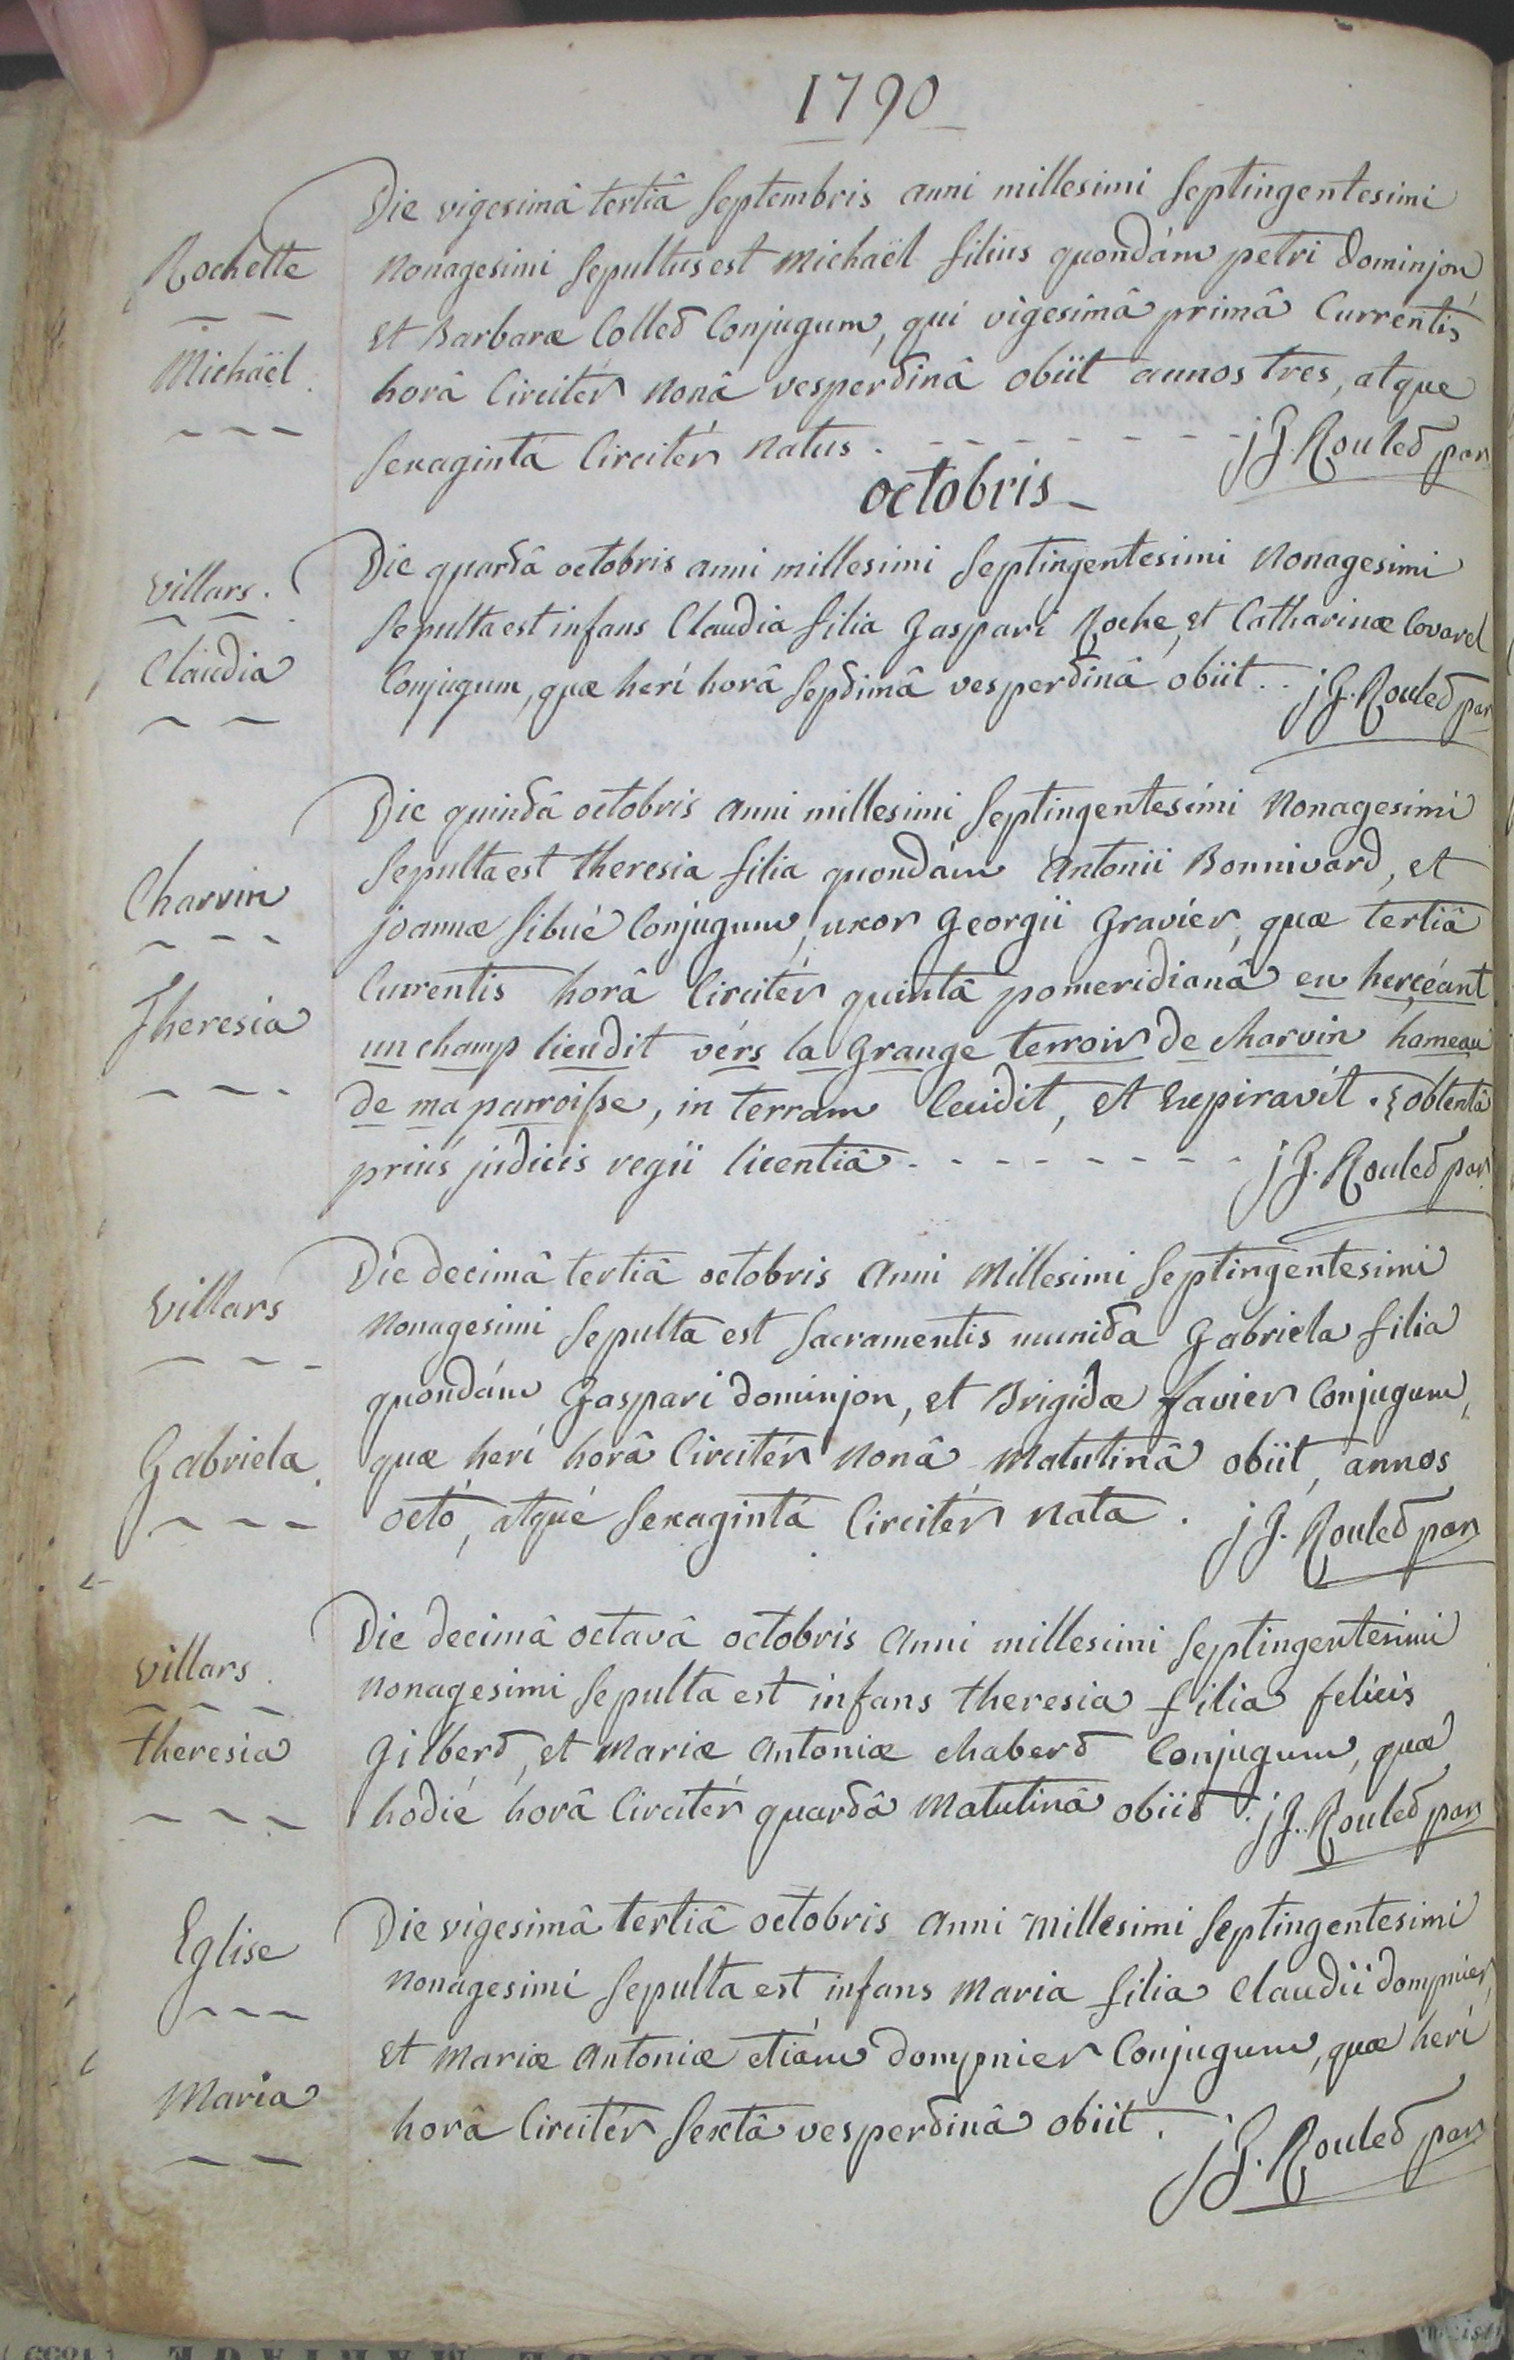 1790
Die vigesimâ tertiâ Septembris anni millesimi Septingentesimi
Rochette
nonagesimi Sepultus est Michaël filius quondám petri dominjon,
Michaël.
et Barbaræ Collet Conjugum, qui vigesimâ primâ Currentis
horâ Circitér nonâ vespertinâ obiit annos tres, atque
Sexagintá Circitér natus.
jJ. Roulet par
octobris
villars.
Die quartâ octobris anni millesimi Septingentesimi nonagesimi
Sepulta est infans Claudia filia Gaspari Roche, et Catharinæ Covarel
Claudia
Conjugum, quæ herí horâ Septimâ vespertinâ obiit..
jJ. Roulet par
Die quintâ octobris anni millesimi Septingentesimi nonagesimi
Sepulta est theresia filia quondám Antonii Bonnivard, et
Charvin
joannæ Sibué Conjugum, uxor Georgii Gravier, quæ tertiâ
Currentis horâ Circitér quintâ pomeridianâ en herçéant
Theresia
un champ lieudit vérs la Grange terroir de charvin hameau
de ma parroisse, in terram Cecidit, et Expiravit. obtentâ
priús judicis regii licentiâ.
jJ. Roulet par
Die decimâ tertiâ octobris Anni Millesimi Septingentesimi
villars
nonagesimi Sepulta est Sacramentis munita Gabriela filia
quondám Gaspari dominjon, et Brigidæ favier Conjugum,
Gabriela.
quæ herí horâ Circitér nonâ Matutinâ obiit, annos
octó, atqué Sexagintá Circitér nata.
jJ. Roulet par
Die decimâ octavâ octobris Anni millesimi Septingentesimi
villars.
nonagesimi Sepulta est infans theresia filia felicis
theresia
Gilbert, et Mariæ Antoniæ chabert Conjugum, quæ
hodié horâ Circitér quartâ Matutinâ obiit.
jJ. Roulet par
Die vigesimâ tertiâ octobris Anni Millesimi Septingentesimi
Eglise
nonagesimi Sepulta est infans Maria filia Claudii dompnier,
et Mariæ Antoniæ etiám dompnier Conjugum, quæ herí
Maria
horâ Circitér Sextâ vespertinâ obiit.
jJ. Roulet par